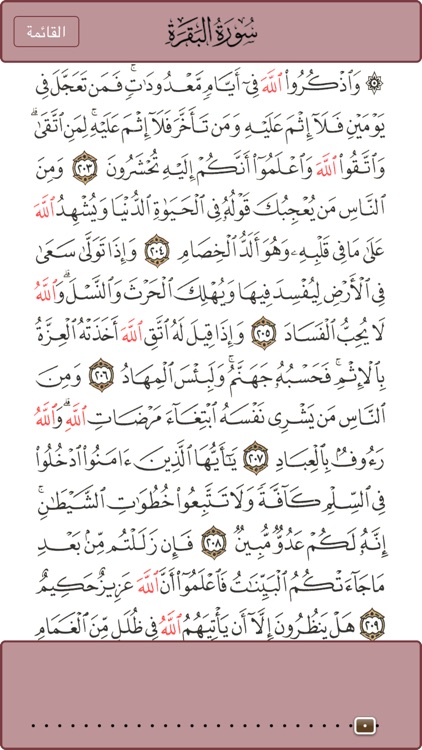 القائمة
سُورَةُ البَقَرَةِ
۞ وَٱذْكُرُوا۟ ٱللَّهَ فِىٓ أَيَّامٍ مَّعْدُودَٰتٍ ۚ فَمَن تَعَجَّلَ فِى
يَوْمَيْنِ فَلَآ إِثْمَ عَلَيْهِ وَمَن تَأَخَّرَ فَلَآ إِثْمَ عَلَيْهِ ۚ لِمَنِ ٱتَّقَىٰ ۗ
وَٱتَّقُوا۟ ٱللَّهَ وَٱعْلَمُوٓا۟ أَنَّكُمْ إِلَيْهِ تُحْشَرُونَ ٢٠٣ وَمِنَ
ٱلنَّاسِ مَن يُعْجِبُكَ قَوْلُهُۥ فِى ٱلْحَيَوٰةِ ٱلدُّنْيَا وَيُشْهِدُ ٱللَّهَ
عَلَىٰ مَا فِى قَلْبِهِۦ وَهُوَ أَلَدُّ ٱلْخِصَامِ ٢٠٤ وَإِذَا تَوَلَّىٰ سَعَىٰ
فِى ٱلْأَرْضِ لِيُفْسِدَ فِيهَا وَيُهْلِكَ ٱلْحَرْثَ وَٱلنَّسْلَ ۗ وَٱللَّهُ
لَا يُحِبُّ ٱلْفَسَادَ ٢٠٥ وَإِذَا قِيلَ لَهُ ٱتَّقِ ٱللَّهَ أَخَذَتْهُ ٱلْعِزَّةُ
بِٱلْإِثْمِ ۚ فَحَسْبُهُۥ جَهَنَّمُ ۚ وَلَبِئْسَ ٱلْمِهَادُ ٢٠٦ وَمِنَ
ٱلنَّاسِ مَن يَشْرِى نَفْسَهُ ٱبْتِغَآءَ مَرْضَاتِ ٱللَّهِ ۗ وَٱللَّهُ
رَءُوفٌۢ بِٱلْعِبَادِ ٢٠٧ يَٰٓأَيُّهَا ٱلَّذِينَ ءَامَنُوا۟ ٱدْخُلُوا۟
فِى ٱلسِّلْمِ كَآفَّةً وَلَا تَتَّبِعُوا۟ خُطُوَٰتِ ٱلشَّيْطَٰنِ ۚ
إِنَّهُۥ لَكُمْ عَدُوٌّ مُّبِينٌ ٢٠٨ فَإِن زَلَلْتُم مِّنۢ بَعْدِ
مَا جَآءَتْكُمُ ٱلْبَيِّنَٰتُ فَٱعْلَمُوٓا۟ أَنَّ ٱللَّهَ عَزِيزٌ حَكِيمٌ
٢٠٩ هَلْ يَنظُرُونَ إِلَّآ أَن يَأْتِيَهُمُ ٱللَّهُ فِى ظُلَلٍ مِّنَ ٱلْغَمَامِ